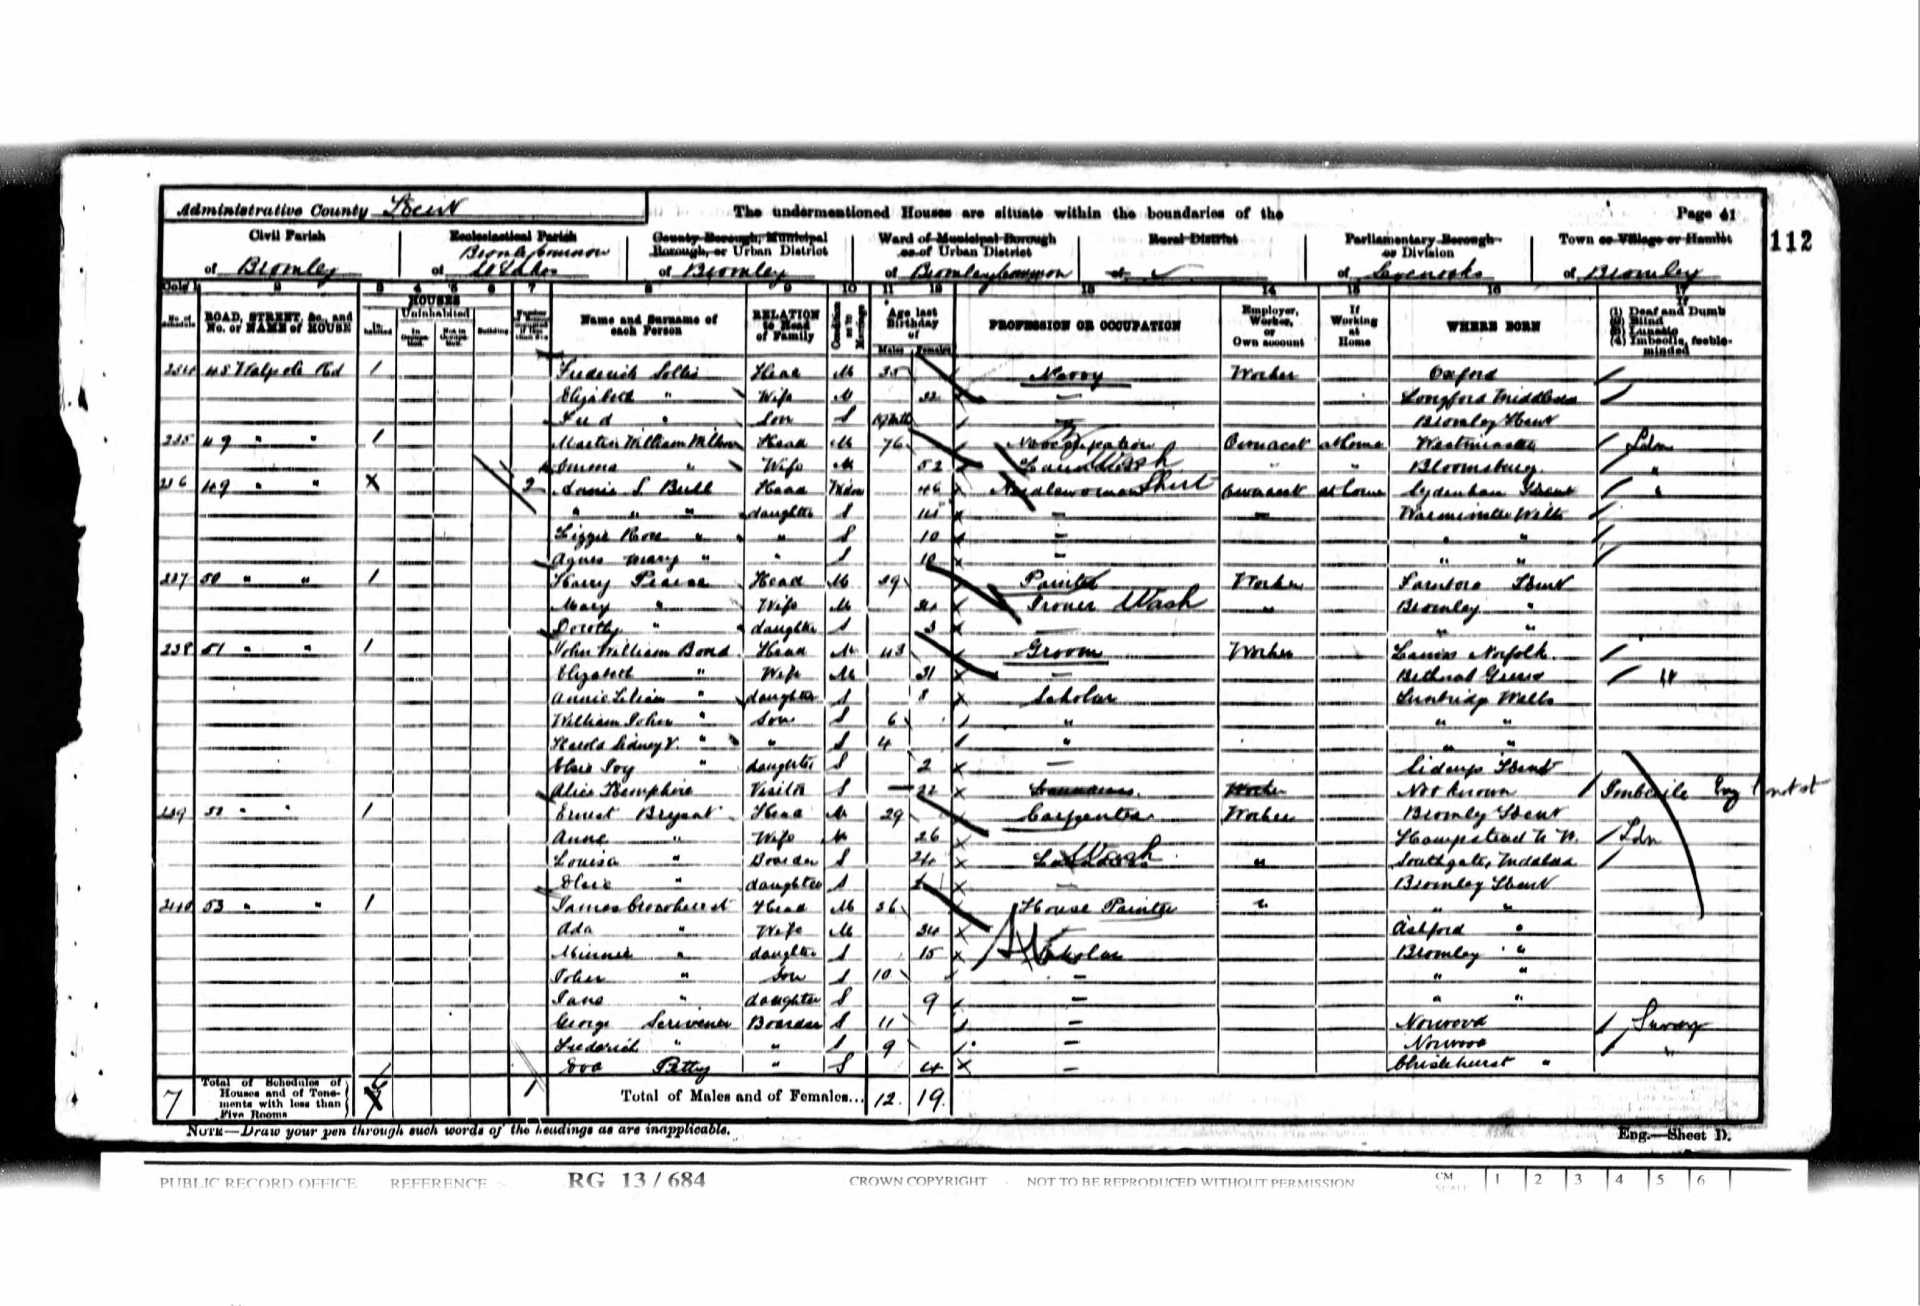 Administrative County Kent
The undermentioned Houses are situate within the boundaries of the
Page 41
112
Civil Parish
of Bromley
Ecclesiastical Parish
of Bromley Common
St Lukes
County Borough, Municipal
Borough, or Urban District
of Bromley
Ward of Municipal Borough
or of Urban District
of Bromley Common
Rural District
of
Parliamentary Borough
or Division
of Sevenoaks
Town or Village or Hamlet
of Bromley
Cols 1 2 3 4 5 6 7 8 9 10 11 12 13 14 15 16 17
No. of Schedule
ROAD, STREET, &c., and
No. or NAME of HOUSE
HOUSES
Inhabited
Uninhabited
In Occupation
Not in Occupation
Building
Name and Surname of
each Person
RELATION
to Head
of Family
Condition as to Marriage
Age last
Birthday
of
Males Females
PROFESSION OR OCCUPATION
Employer,
Worker,
or
Own account
If
Working
at
Home
WHERE BORN
If
(1) Deaf and Dumb
(2) Blind
(3) Lunatic
(4) Imbecile, feeble-
minded
234 48 Walpole Rd 1 Frederick Head M 35 Navvy Worker Oxford
Elizabeth " Wife M 32 — Longford Middlesex
Fred " Son S Mths — Bromley Kent
235 49 " " 1 Martin William Head M 76 No occupation Own acct at home Westminster Ldn
Emma " Wife M 52 Laundress Wash " " Bloomsbury "
236 49 " " X 2 Annie S. Bull Head Widow 46 Needlewoman Shirt Own acct at home Sydenham Kent "
" " " daughter S 14 — — Warminster Wilts
Lizzie Rose " " S 10 — " "
Agnes Mary " " S 10 — " "
237 50 " " 1 Harry Pearce Head M 29 Painter Worker Farnboro Kent
Mary " Wife M 24 Ironer Wash " Bromley "
Dorothy " daughter S 3 — " "
238 51 " " 1 John William Bond Head M 43 Groom Worker Norfolk
Elizabeth " Wife M 31 — Bethnal Green
Annie Lilian " daughter S 8 Scholar Tunbridge Wells
William John " Son S 6 " " "
Harold Sidney V. " " S 4 " " "
Elsie Ivy " daughter S 2 — Sidcup Kent
Alice Visitor S 22 Worker Not known Imbecile
239 52 " " 1 Ernest Bryant Head M 29 Carpenter Worker Bromley Kent
Anne " Wife M 26 Hampstead N. W. Ldn
Louisa " Boarder S 24 Laundress Wash " Southgate, Middlesex
Elsie " daughter S — Bromley Kent
240 53 " " 1 James Crowhurst Head M 36 House Painter " " "
Ada " Wife M 34 Ashford "
Minnie " daughter S 15 Scholar Bromley "
John " Son S 10 — " "
Jane " daughter S 9 — " "
George Scrivener Boarder S 11 — Norwood Surrey
Frederick " " S 9 — Norwood "
Eva Petty " S 4 — Chislehurst "
7
Total of Schedules of
Houses and of Tene-
ments with less than
Five Rooms
1
Total of Males and of Females... 12. 19.
NOTE—Draw your pen through such words of the headings as are inapplicable.
Eng.—Sheet D.
PUBLIC RECORD OFFICE REFERENCE RG 13/684 CROWN COPYRIGHT NOT TO BE REPRODUCED WITHOUT PERMISSION CM 1 2 3 4 5 6